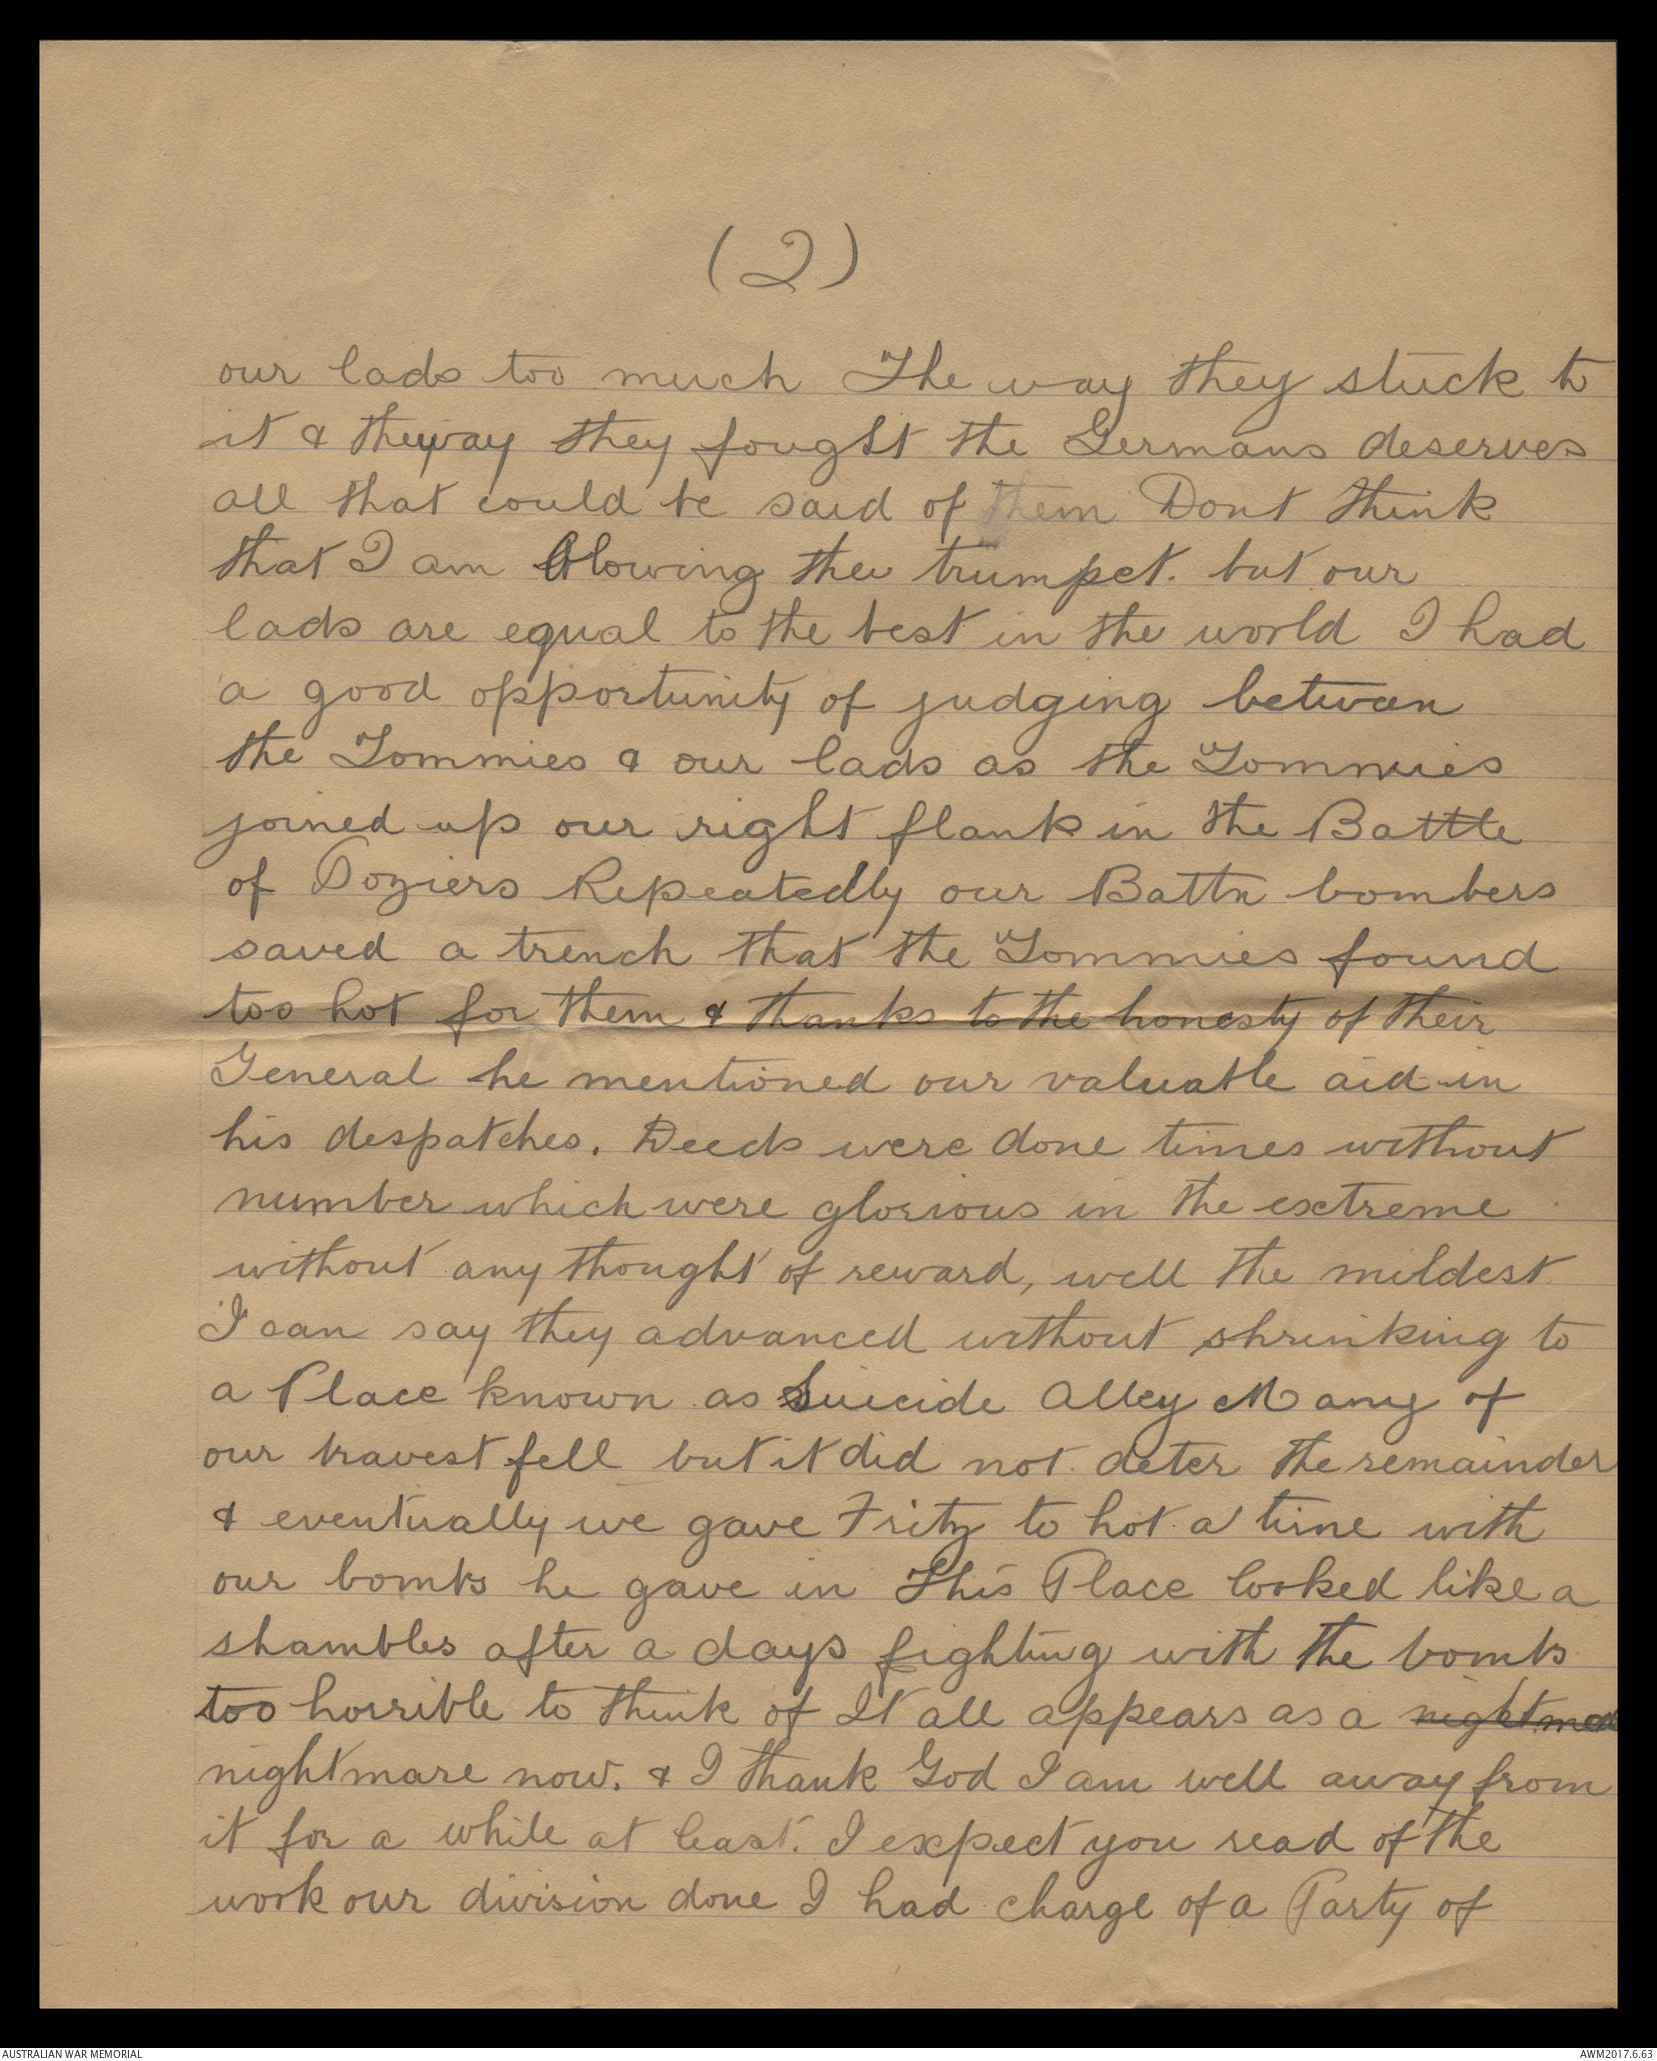 (2)
our lads too much The way they stuck to
it & the way they fought the Germans deserves
all that could be said of them Dont think
that I am blowing the trumpet. but our
lads are equal to the best in the world I had
a good opportunity of judging between
the Tommies & our lads as the Tommies
joined up our right flank in the Battle
of Poziers Repeatedly our Battn bombers
saved a trench that the Tommies found
too hot for them & thanks to the honesty of their
General he mentioned our valuable aid in
his despatches. Deeds were done times without
number which were glorious in the extreme
without any thought of reward, well the mildest
I can say they advanced without shrinking to
a Place known as Suicide Alley Many of
our bravest fell but it did not deter the remainder
& eventually we gave Fritz to hot a time with
our bombs he gave in This Place looked like a
shambles after a days fighting with the bombs
too horrible to think of It all appears as a nightmare
nightmare now. & I thank God I am well away from
it for a while at least. I expect you read of the
work our division done I had charge of a Party of
AUSTRALIAN WAR MEMORIAL
AWM2017.6.63